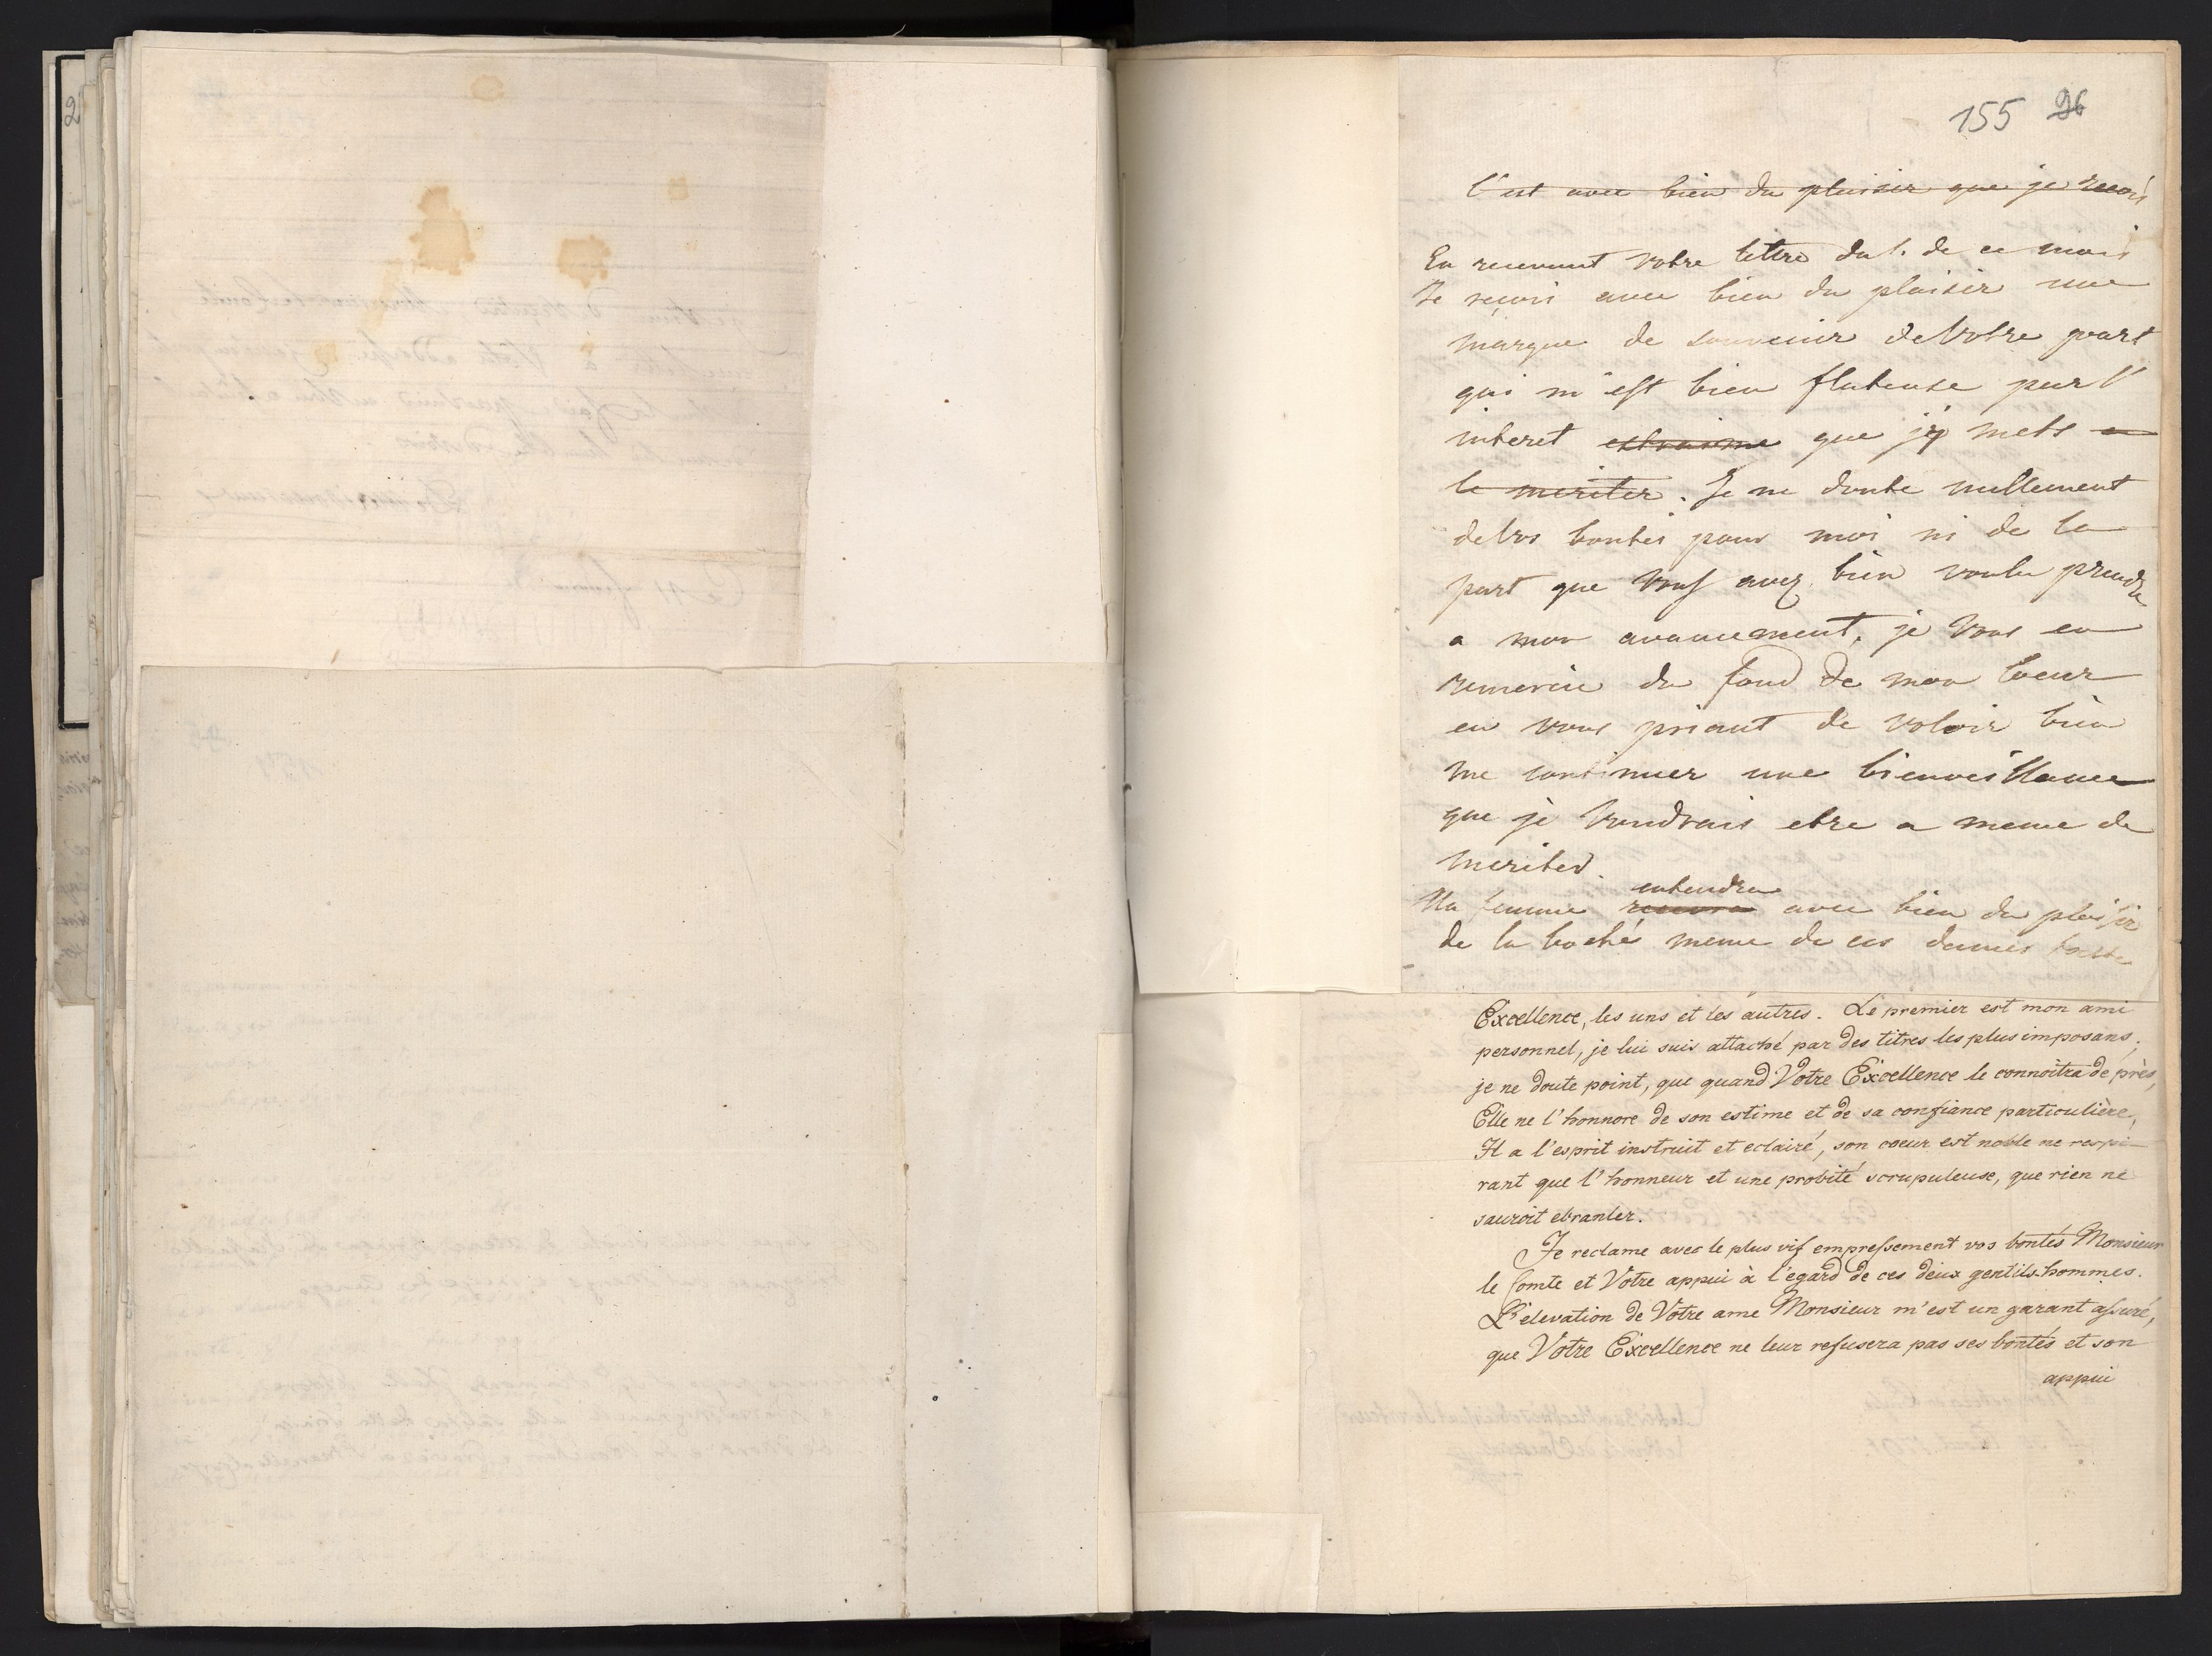 155 26
C'est avec bien du plaisir que je recois
En recevant votre lettre du 1. de ce mois
Je reçois avec bien du plaisir une
marque de souvenir de Votre part
qui m'est bien flateuse par l'
interet extraime que j'y mets a
le meriter. Je ne doute nullement
de Vos bontés pour moi ni de la
part que Vous avez bien voulu prendre
a mon avancement, je Vous en
remercie du fond de mon Coeur
en vous priant de voloir bien
me continuer une bienveillance
que je Voudrais etre a meme de
meriter.
entendra
Ma femme recevra avec bien du plaisir
de la boché meme de ces dames
Excellence, les uns et les autres. Le premier est mon ami
personnel, je lui suis attaché par des titres les plus imposans;
je ne doute point, que quand Votre Excellence le connoîtra de près,
Elle ne l'honnore de son estime et de sa confiance particulière,
Il a l'esprit instruit et eclairé, son coeur est noble ne respi-
rant que l'honneur et une probité scrupuleuse, que rien ne
sauroit ebranler.
Je reclame avec le plus vif empressement vos bontés Monsieur
le Comte et Votre appui à l'egard de ces deux gentils-hommes.
L'elevation de Votre ame Monsieur m'est un garant assuré,
que Votre Excellence ne leur refusera pas ses bontés et son
appui